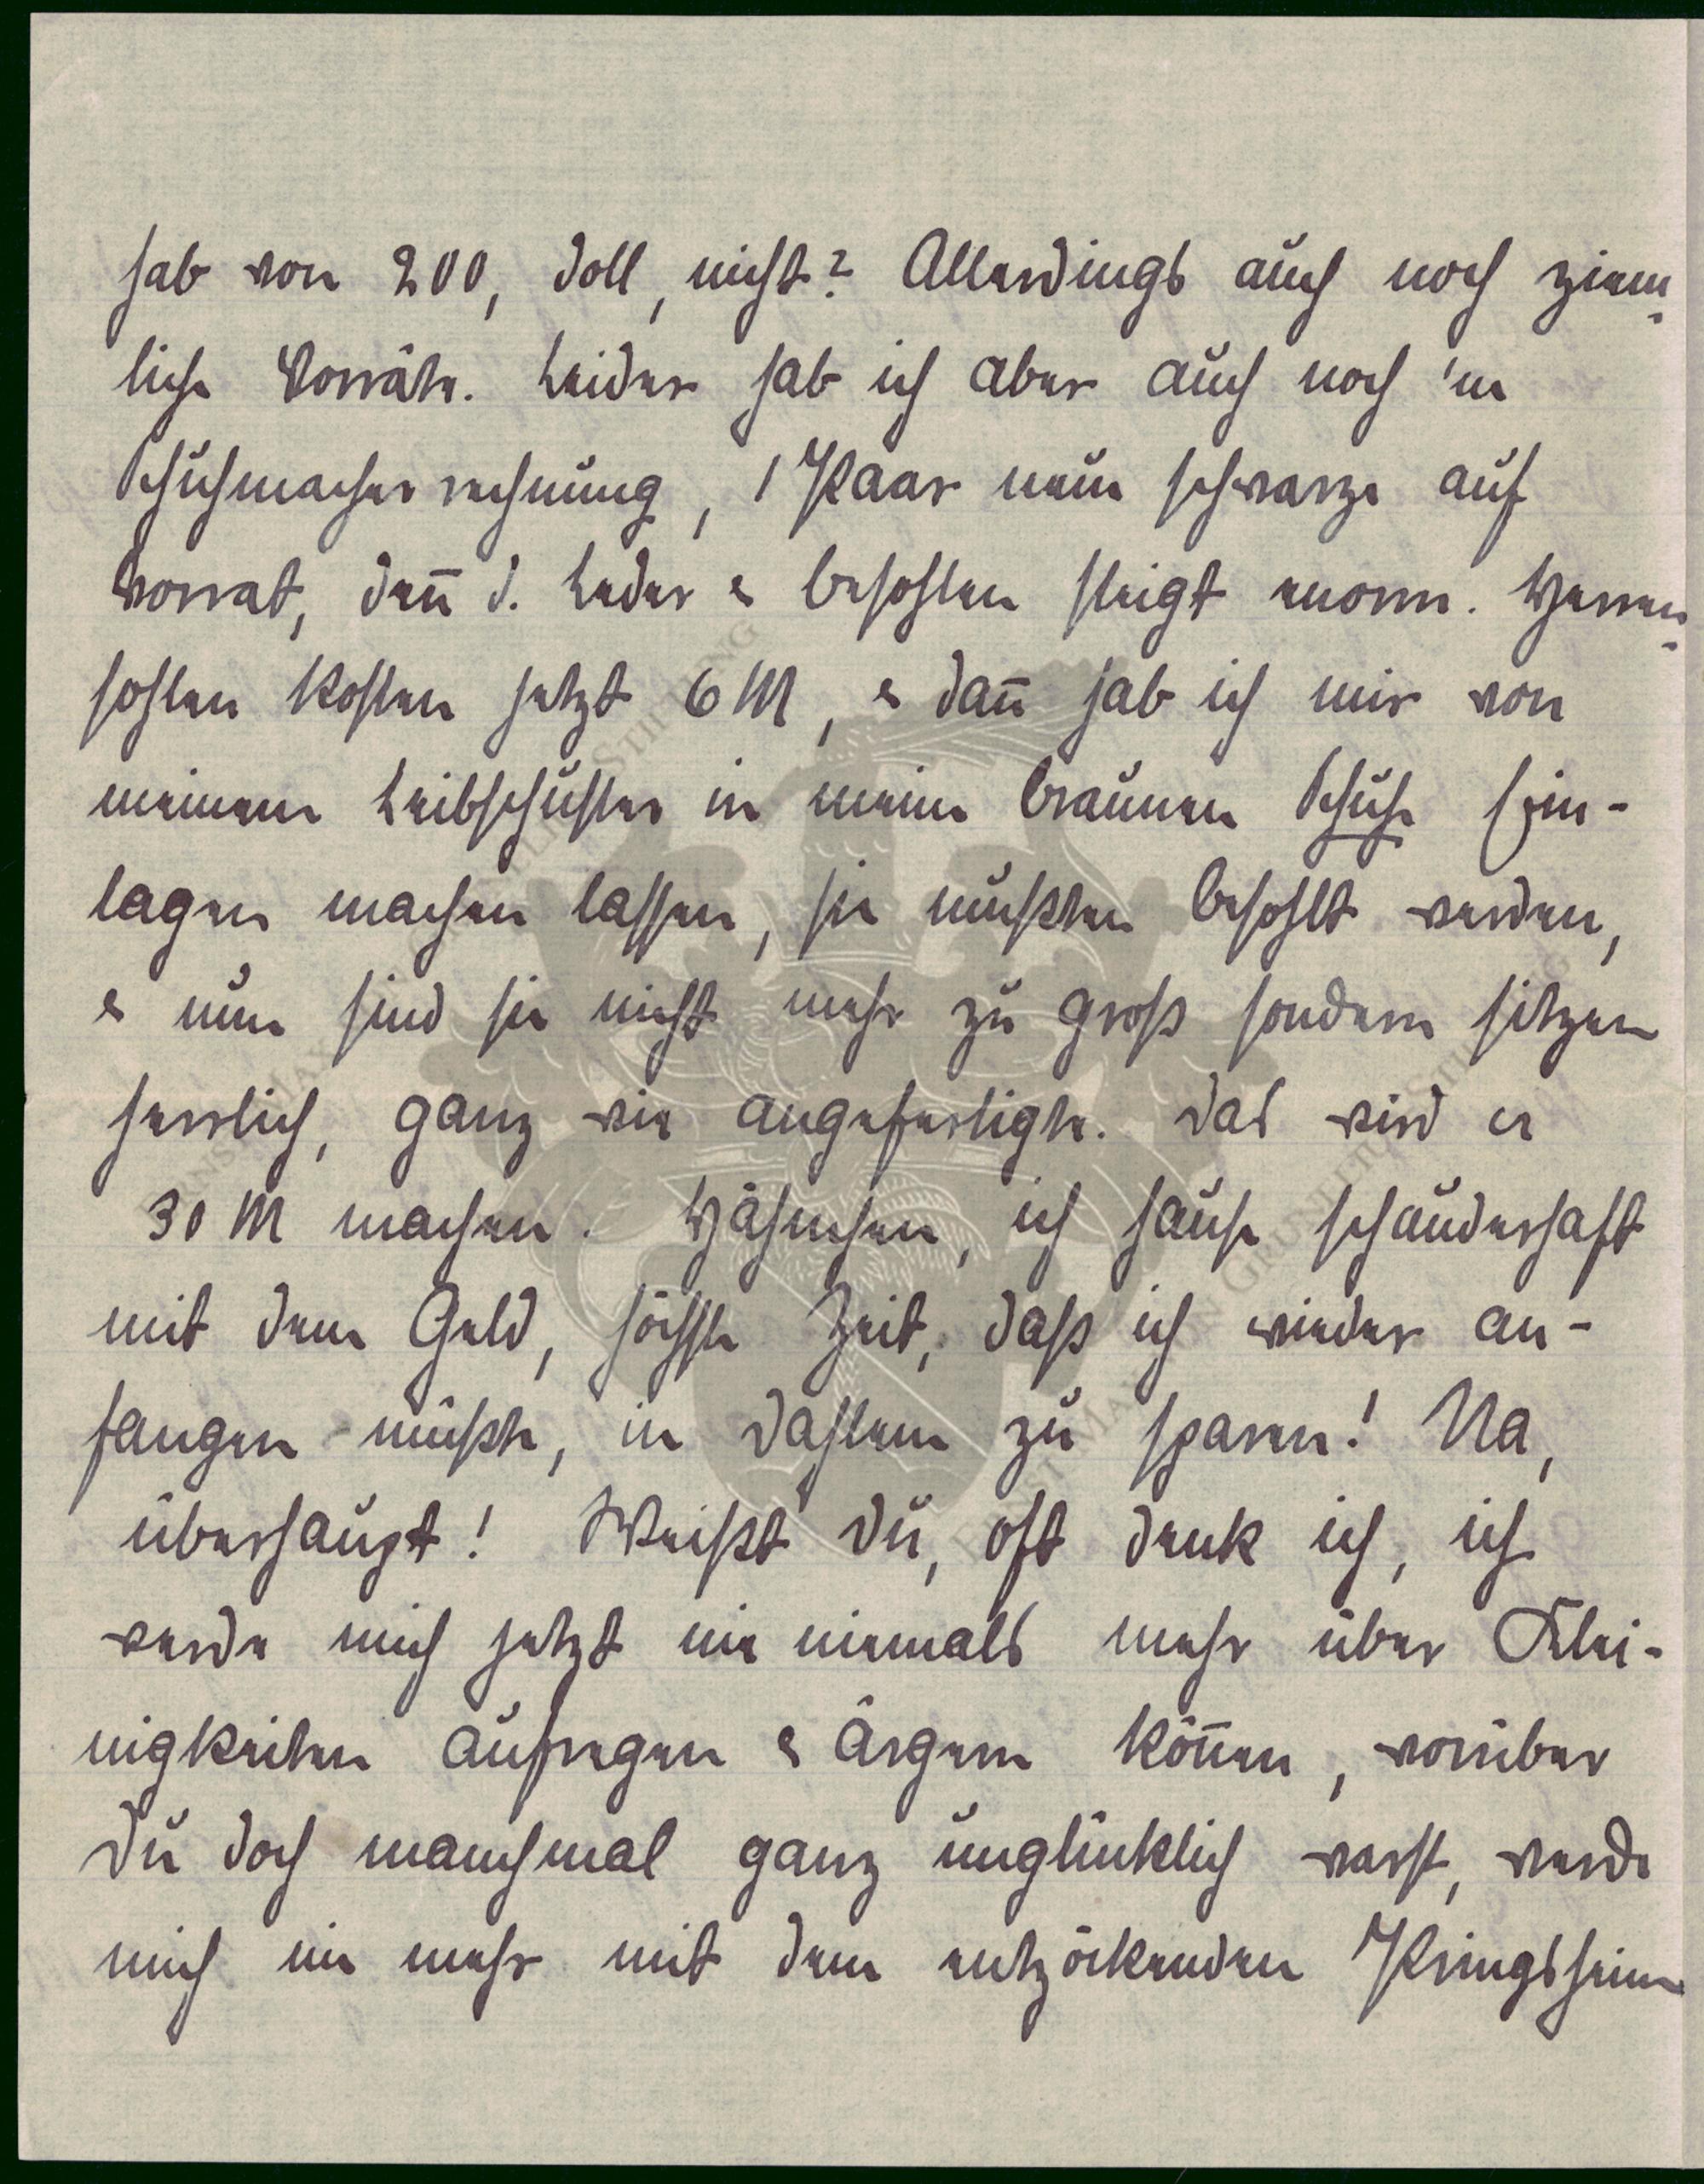 hab von 200, doll, nicht? Allerdings auch noch ziem-
liche Vorräte. Leider hab ich aber auch noch 'ne
Schuhmacherrechnung, 1 Paar neue schwarze auf
Vorrat, den̅ d. Leder & besohlen steigt enorm. Herren-
sohlen kosten jetzt 6 M, & dan̅ hab ich mir von
meinem Leibschuster in meine braunen Schuhe Ein-
lagen machen lassen, sie mußten besohlt werden,
& nun sind sie nicht mehr zu groß sondern sitzen
herrlich, ganz wie angefertigte. Das wird ca
30 M machen. Hähnchen, ich hause schauderhaft
mit dem Geld, höchste Zeit, daß ich wieder an-
fangen müßte, in Dahlem zu sparen! Na,
überhaupt! Weißt Du, oft denk ich, ich
werde mich jetzt nie niemals mehr über Klei-
nigkeiten aufregen & ärgern kön̅en, worüber
Du doch manchmal ganz unglücklich warst, werde
mich nie mehr mit dem entzückenden Pringsheim
ERNST MAX VON GRUNELIUS-STIFTUNG
ERNST MAX VON GRUNELIUS-STIFTUNG